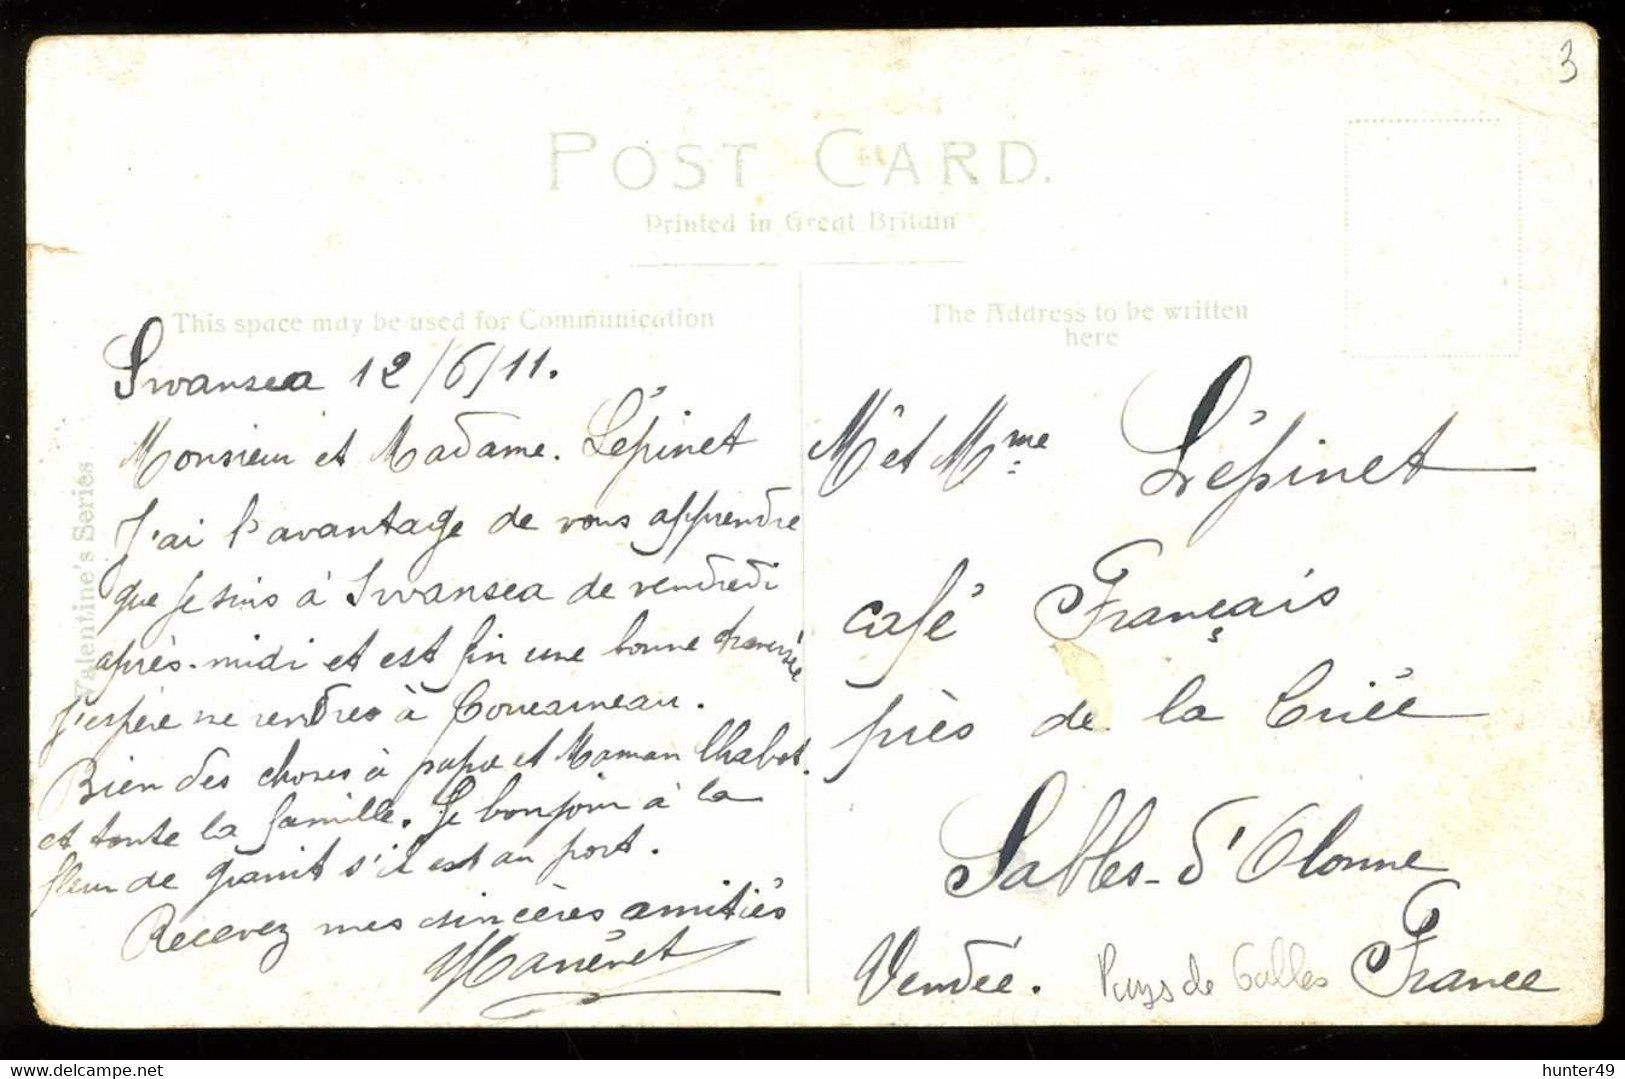 3
POST CARD.
Printed in Great Britain
This space may be used for Communication
The Address to be written
here
Valentine's Series
Swansea 12/6/11.
Monsieur et Madame. Lépinet
J'ai l'avantage de vous apprendre
que je suis à Swansea de vendredi
après-midi et est fin une bonne traversée
j'espère me rendres à
Bien des choses à papa et Maman Chabot.
et toute la famille. Le bonjour à la
fleur de granit s'il est au port.
Recevez mes sincères amitiés
M et Mme Lépinet
café Français
près de la Criée
Sables-d'Olonne
Vendée. Pays de Galles France
www.delcampe.net
hunter49